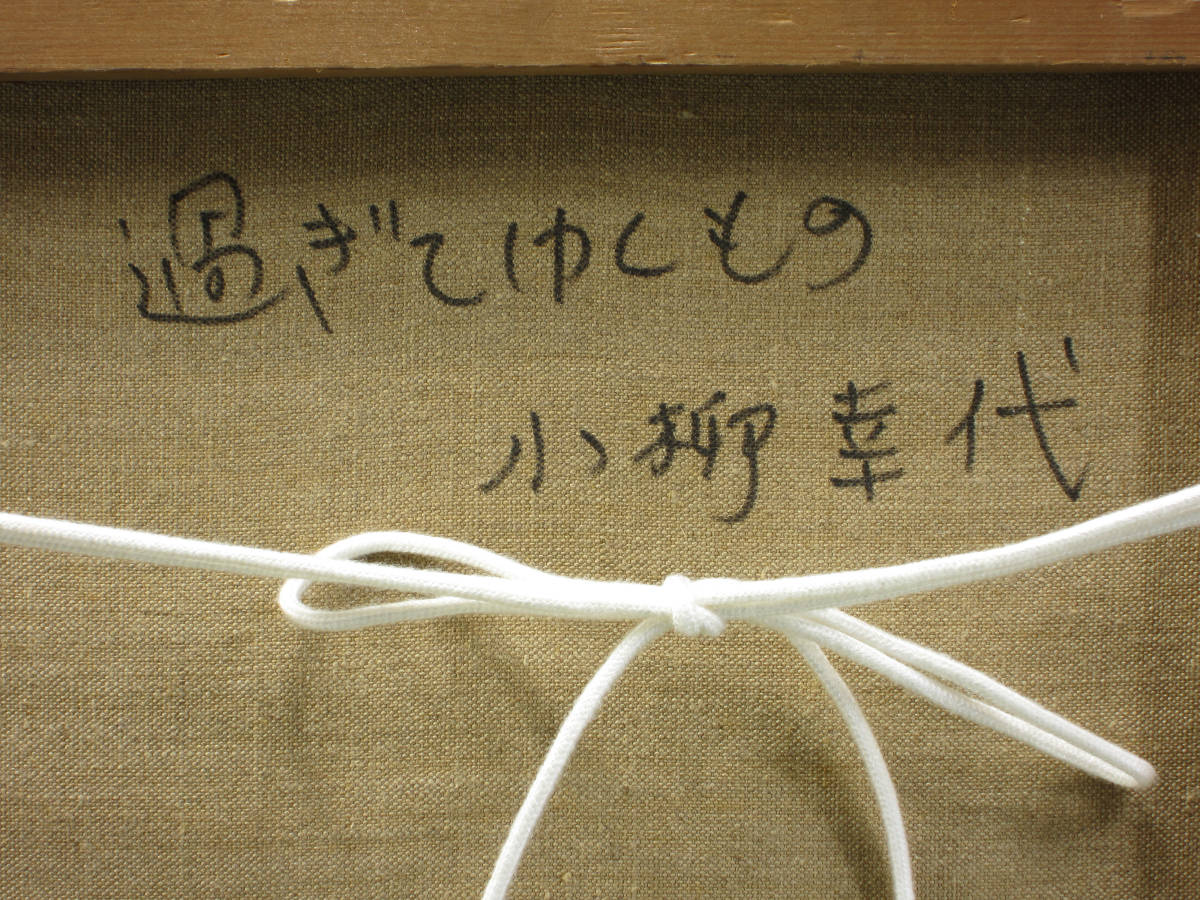 過ぎてゆくもの
小柳幸代